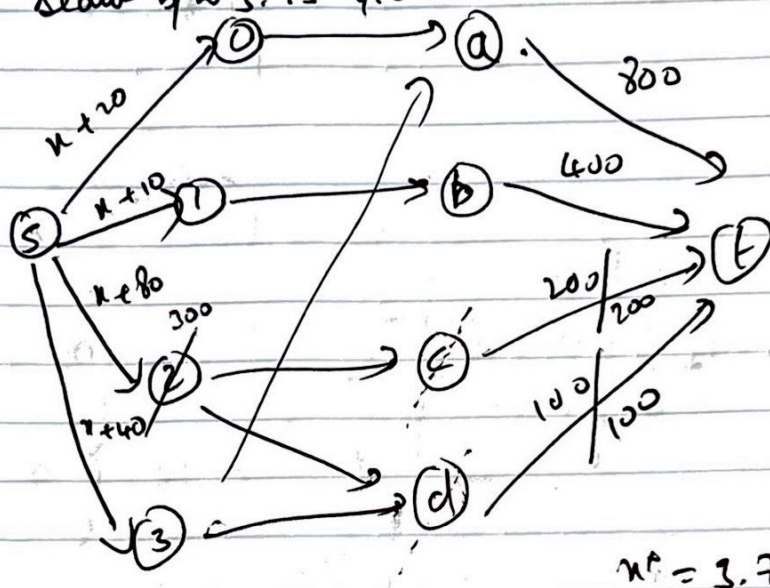 0
a
x + 20
800
x + 10
1
b
400
s
t
x + 80
300
200
200
2
c
x + 40
100
100
3
d
x* = 3.7